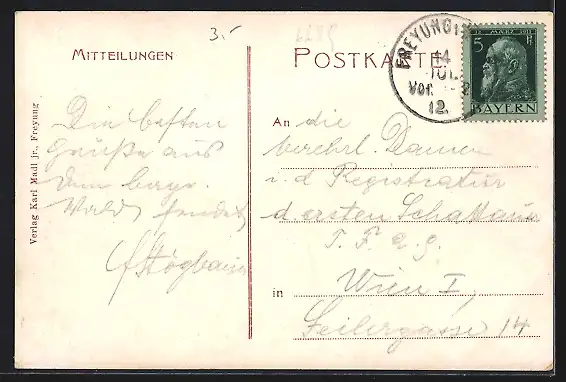 3.-
MITTEILUNGEN
POSTKARTE.
FREYUNG
14
JUL.
Vor. 8-
12.
12. MÄRZ 1911
5 Pf
BAYERN
Die besten
Grüße aus
dem bayr.
Wald sendet
Verlag Karl Madl jr., Freyung
An die
verehrl. Damen
i. d Registratur
d. ersten
in Wien I,
Seilergasse 14